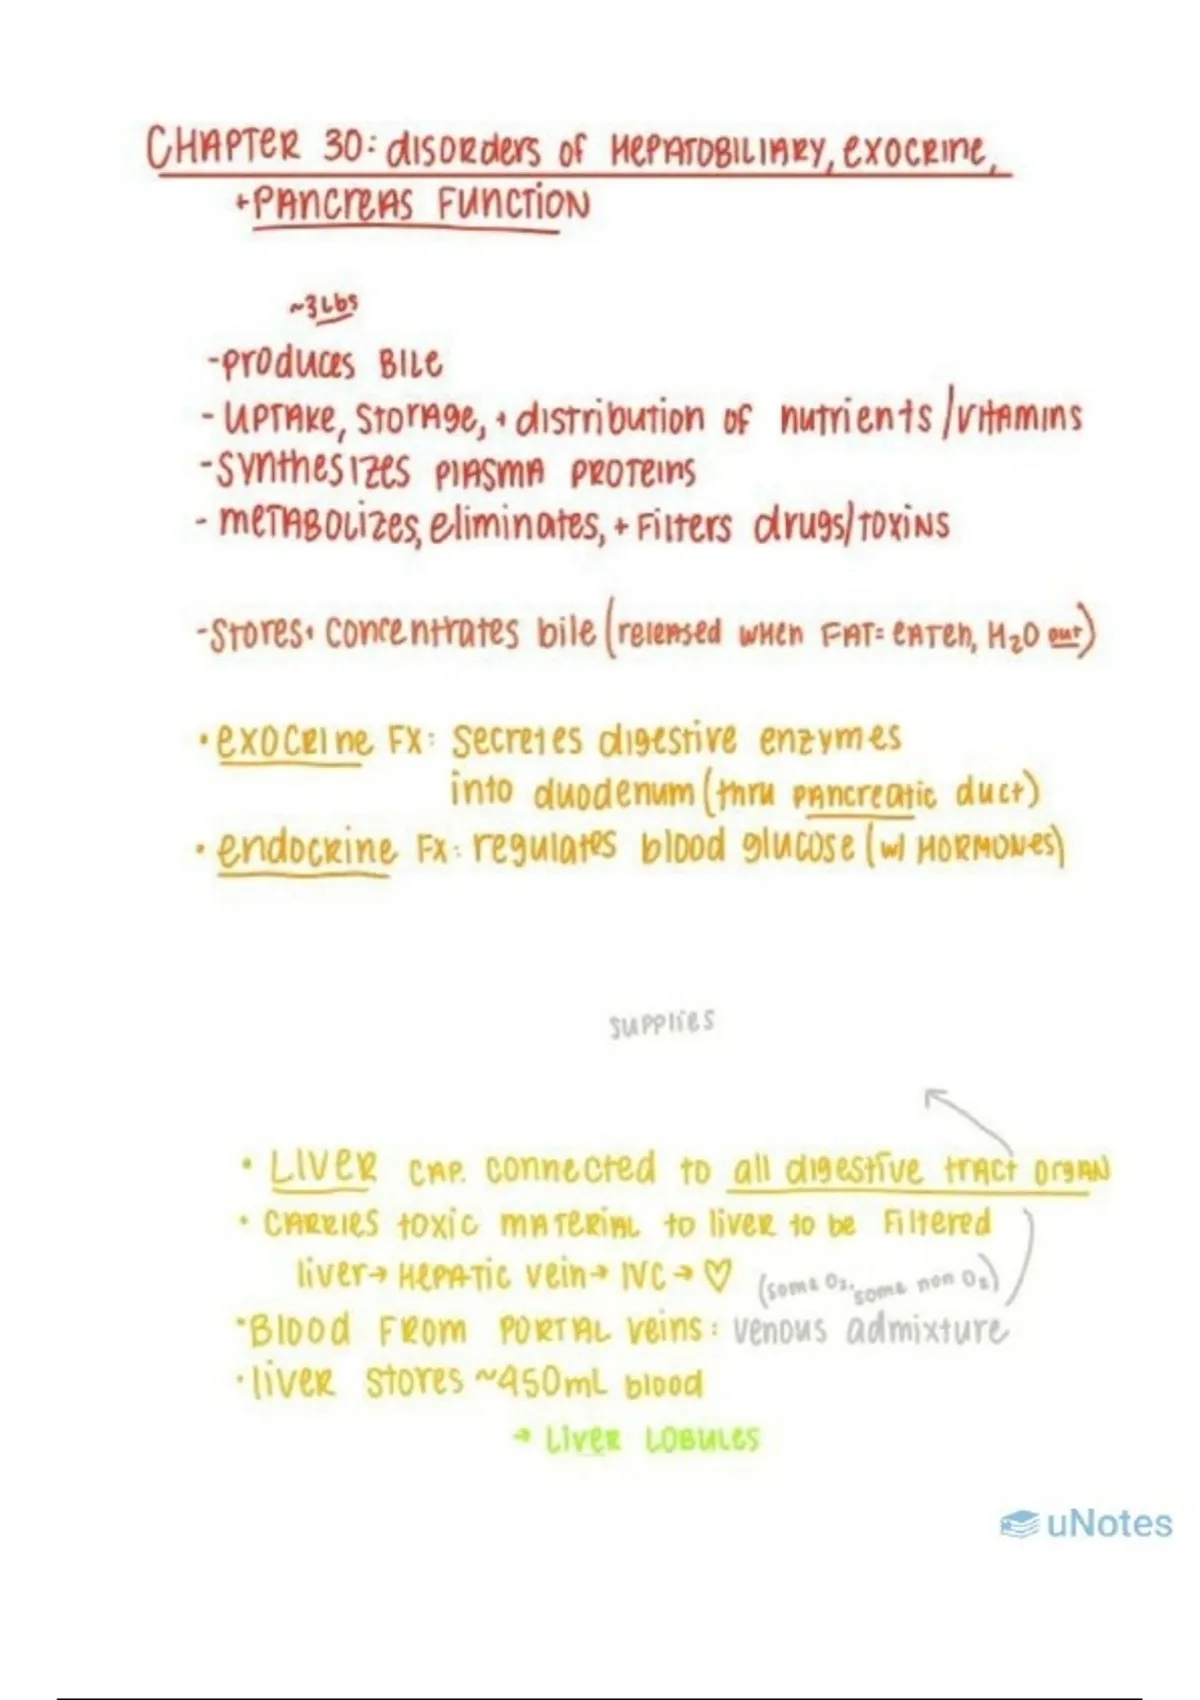 CHAPTER 30: disorders of HEPATOBILIARY, exocrine,
+ PANCREAS FUNCTION
~3 Lbs
- Produces BILE
- UPTAKE, STORAGE, + distribution of nutrients/VITAMINS
- Synthesizes PLASMA PROTEINS
- METABOLIZES, eliminates, + Filters drugs/TOXINS
- Stores + Concentrates bile (released WHEN FAT = EATEN, H₂O out)
• exocrine FX: Secretes digestive enzymes
into duodenum (thru PANCREATIC duct)
• endocrine FX: regulates blood glucose (w/ HORMONES)
Supplies
• LIVER CAP. Connected to all digestive TRACT ORGAN
• CARRIES toxic MATERIAL to liver to be Filtered
liver → HEPATIC vein → IVC → ♡ (some O₂, some non O₂)
• Blood FROM PORTAL Veins: venous admixture
• liver stores ~450mL blood
→ LIVER LOBULES
uNotes